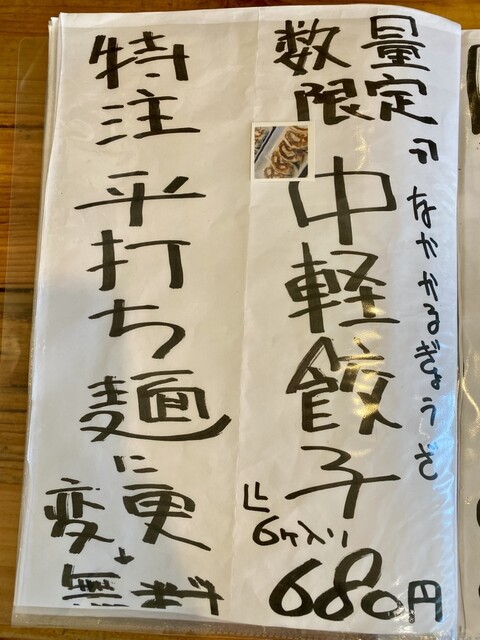 数量限定
『中軽餃子』
なかかるぎょうざ
6ヶ入り
680円
特注平打ち麺に
変更→無料